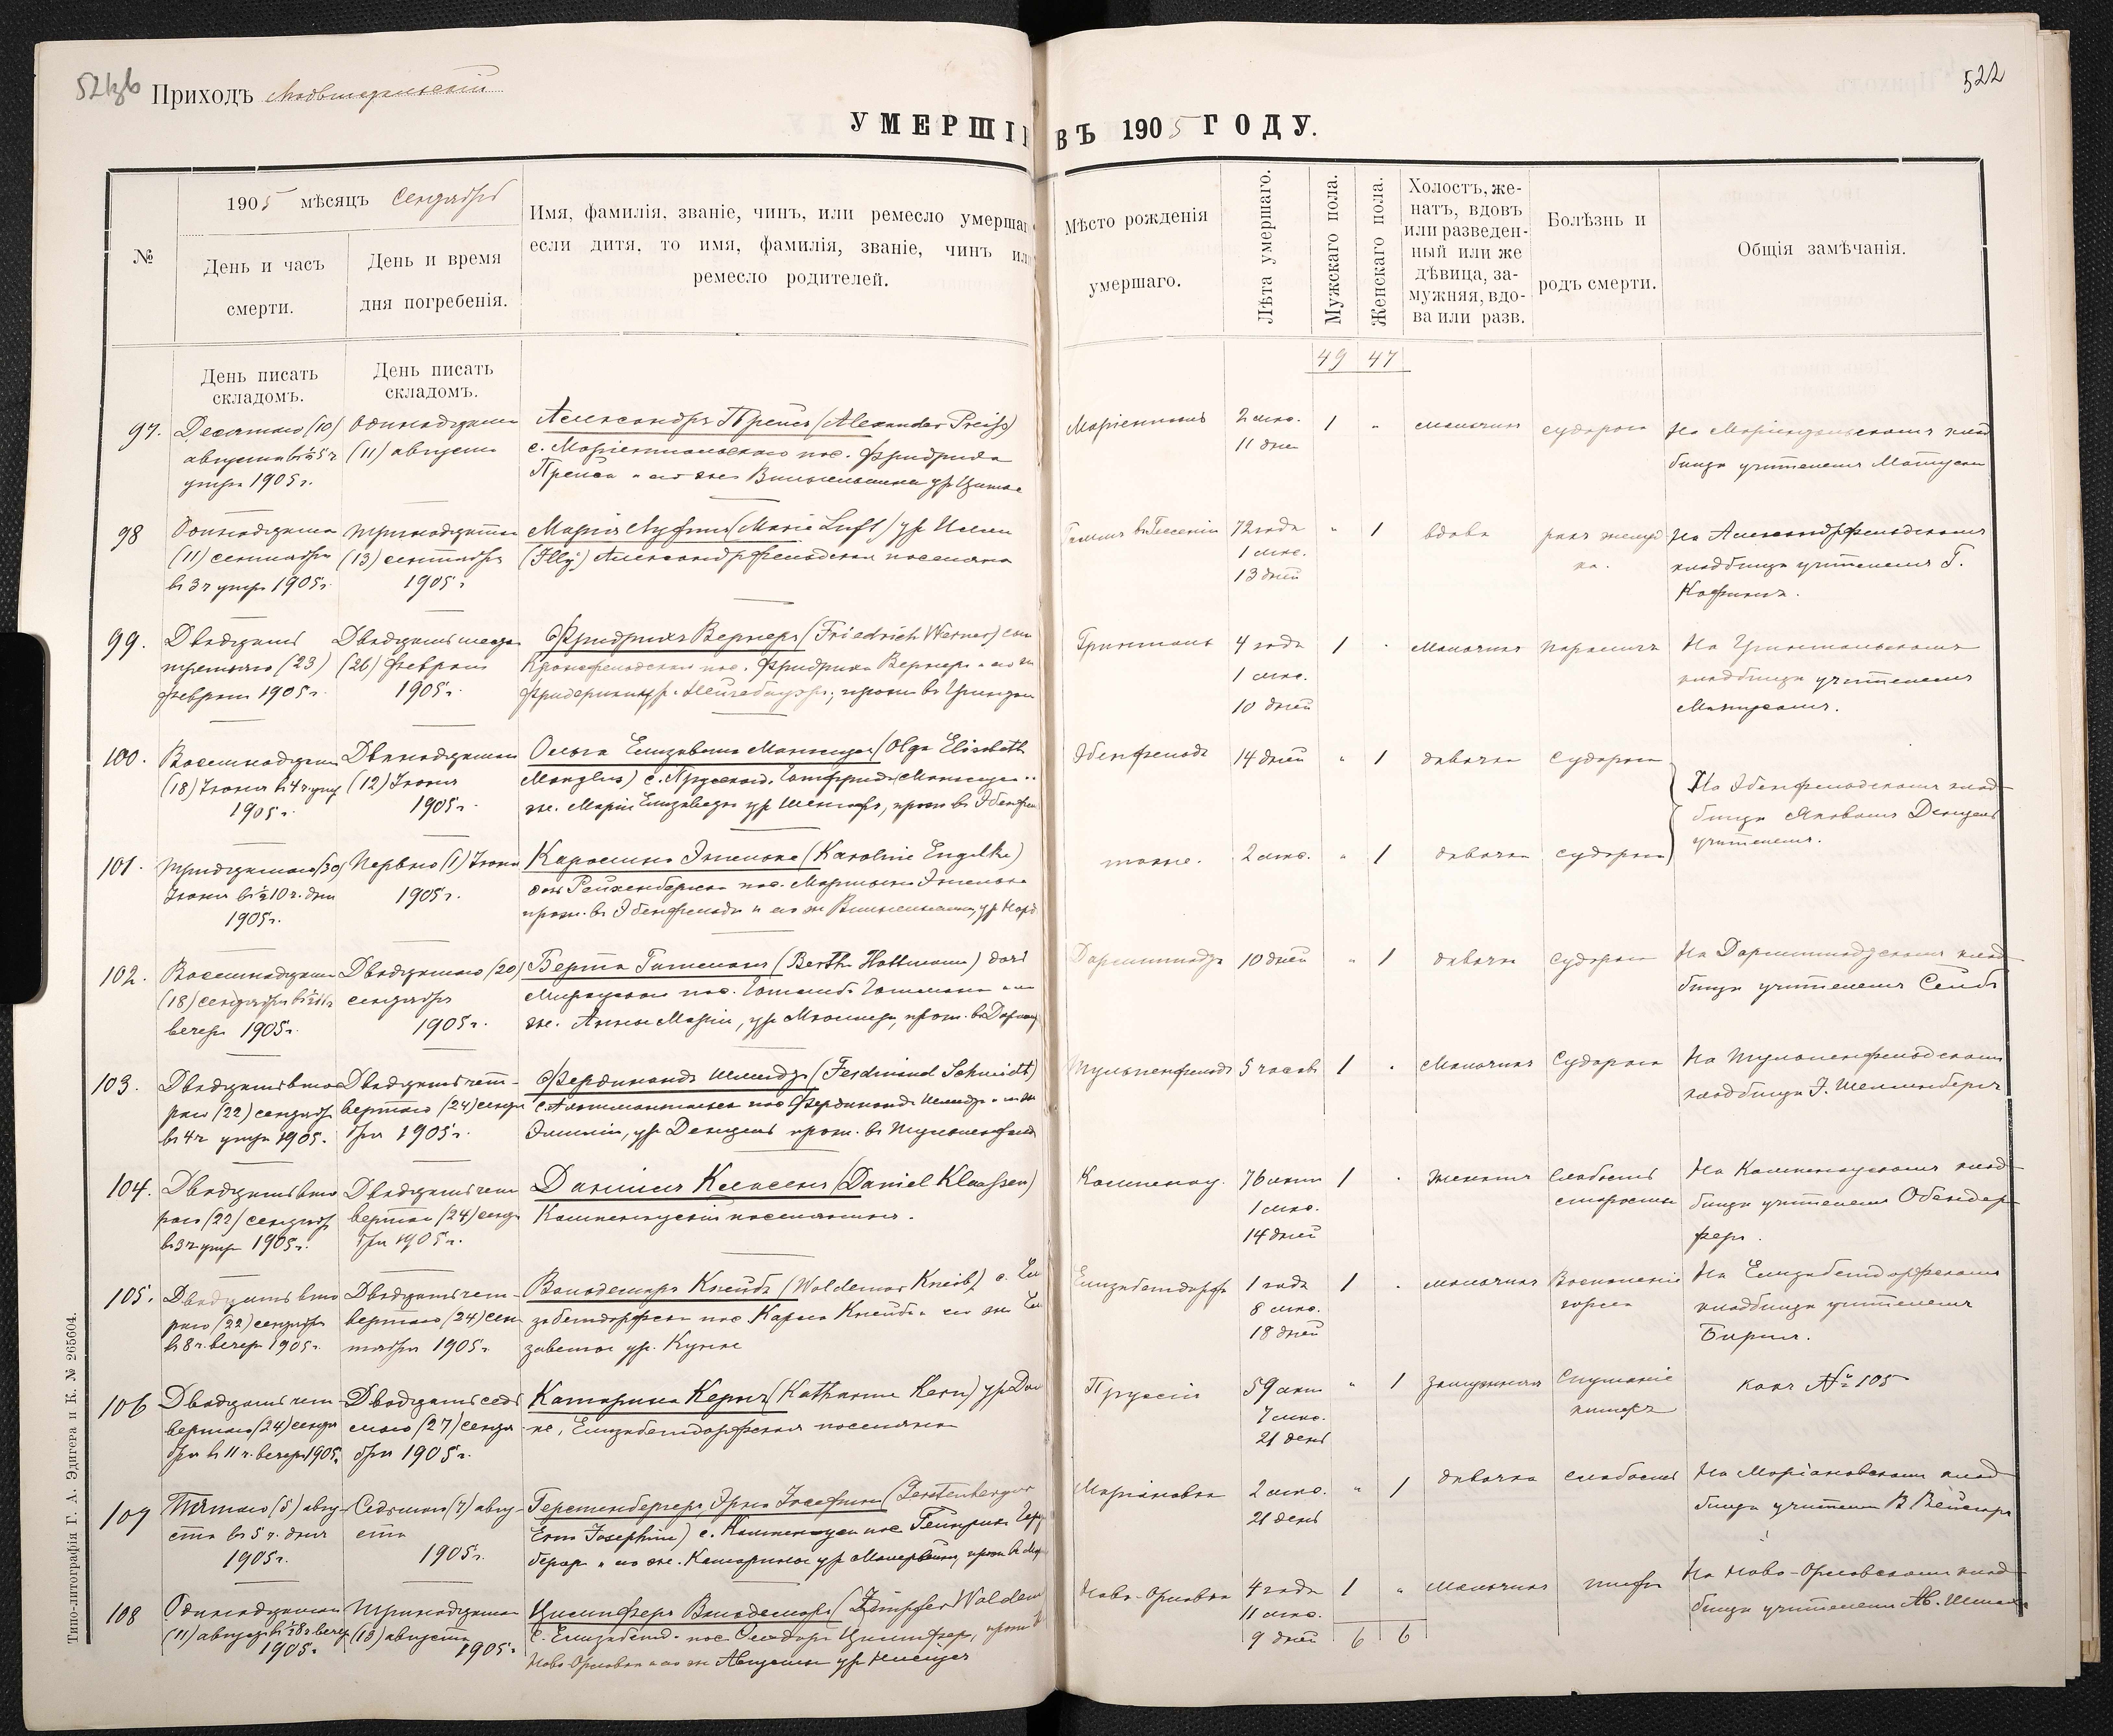 521об
Приходъ Людвигстальскій
522
УМЕРШІ ВЪ 1905 ГОДУ.
№
1905 мѣсяцъ Сентябрь
День и часъ
смерти.
День и время
дня погребенія.
Имя, фамилія, званіе, чинъ, или ремесло умершаг
если дитя, то имя, фамилія, званіе, чинъ ил
ремесло родителей.
Мѣсто рожденія
умершаго.
Лѣта умершаго.
Мужскаго пола.
Женскаго пола.
Холостъ, же-
натъ, вдовъ
или разведен-
ный или же
дѣвица, за-
мужняя, вдо-
ва или разв.
Болѣзнь и
родъ смерти.
Общія замѣчанія.
День писать
складомъ.
День писать
складомъ.
49 47
97.
Десятаго (10)
августа в ½5 ч
утра 1905 г.
Одинадцата
(11) августа
Александръ Прейсъ (Alexander Preiss)
с. Маріентальскаго пос. Фридриха
Прейса и его жен Вильгельмины ур
Маріенталь
2 мѣс.
11 дней
1 "
мальчикъ
судороги
На Маріентальскомъ клад
бищѣ учителемъ
98
Одинадцата
(11) сентября
въ 3 ч утра 1905 г.
Тринадцата
(13) сентября
1905 г
Марія Луфтъ (Marie Luft) ур Илли
(Illy) Александрфельдская поселянка
72 года
1 мѣс.
13 дней
" 1
вдова
ракъ желуд
ка.
На Александрфельдскомъ
кладбищѣ учителемъ Г.
99.
Двадцать
третьяго (23)
февраля 1905 г.
Двадцать шест
(26) февраля
1905 г.
Фридрихъ Вернеръ (Friedrich Werner) сын
Кронсфельдскаго пос. Фридриха Вернера и его ж
Фридерики ур. Нейгебауеръ, прож въ Грюнтал
Грюнталь
4 года
1 мѣс.
10 дней
1 "
Мальчикъ
параличъ
На Грюнтальскомъ
кладбищѣ учителемъ
100.
Восемнадцата
(18) Іюня в 4 ч. утр
1905 г.
Двѣнадцатаго
(12) Іюня
1905 г.
Ольга Елизавета Манглусъ (Olga Elisabeth
Manglus)
ж. Маріи Елизаветы ур Шенгофъ, прож въ Эбенфел
Эбенфельдъ
14 дней
" 1
дѣвочка
судороги
На Эбенфельдскомъ клад
бищѣ Яковомъ Денцель
учителемъ.
101.
Тридцатаго (30)
Іюня в ½10 ч. дня
1905 г.
Перваго (1) Іюля
1905 г.
Каролина Энгельке (Karoline Engelke)
дочь Рейхенбергск пос. Мартына Энгельке
прож. въ Эбенфельдѣ и его ж Вильгельмины, ур
тоже.
2 мѣс.
" 1
дѣвочка
судороги
102.
Восемнадцата
(18) сентября
вечера 1905 г.
Двадцатаго (20)
сентября
1905 г.
Берта Гатманъ (Bertha Hattmann) дочь
ж. Анны Маріи, ур Мюллеръ, прож. въ Дарм
Дармштадтъ
10 дней
" 1
дѣвочка
судороги
На Дармштадтскомъ клад
бищѣ учителемъ Сейбъ
103.
Двадцать вто
раго (22) сентябр
въ 4 ч утра 1905.
Двадцать чет-
вертаго (24) сентя
бря 1905 г.
Фердинандъ Шмидтъ (Ferdinand Schmidt)
с. Альтмонтальск пос Фердинанда Шмидтъ и его ж
Эмиліи, ур Денцель прож. въ Тюльпенфельд
Тюльпенфельдъ
5 часовъ
1 "
Мальчикъ
Судороги
На Тюльпенфельдскомъ
кладбищѣ Э. Шелленбергъ
104.
Двадцать вто
раго (22) сентябр
въ 3 ч утр 1905 г.
Двадцать чет
вертаго (24) сентя
бря 1905 г.
Даніилъ Клаасенъ (Daniel Klaassen)
Кампенаускій поселянинъ.
Кампенау.
76 лѣтъ
1 мѣс.
14 дней
1 "
женатъ
слабость
старости
На Кампенаускомъ клад
бищѣ учителемъ Обендер
феръ.
105.
Двадцать вто
раго (22) сентября
в 8 ч. вечера 1905 г.
Двадцать чет-
вертаго (24) сен
тября 1905 г.
Вальдемаръ Кнейбъ (Woldemar Kneib) с. Ели
забетдорфск пос Карла Кнейба и его ж Ели
заветы ур. Кунке
Елизабетдорфъ
1 годъ
8 мѣс.
18 дней
1 "
мальчикъ
Воспаленіе
горла
На Елизабетдорфскомъ
кладбищѣ учителемъ
106
Двадцать чет
вертаго (24) сентя
бря в 11 ч. вечера 1905.
Двадцать седь
маго (27) сентя
бря 1905 г.
Катарина Кернъ (Katharina Kern) ур
Елизабетдорфская поселянка
Пруссіи
59 лѣтъ
7 мѣс.
21 день
" 1
замужняя
какъ № 105
107
Пятаго (5) авгу-
ста въ 5 ч. дня
1905 г.
Седьмаго (7) авгу-
ста
1905 г.
Герстенбергеръ, Эрна Іозефина (Gerstenberger
Erna Josephine) с. Кампенауск пос Гейнриха Гер
бергеръ и его ж. Катарины ур
Маріановка
2 мѣс.
21 день
" 1
дѣвочка
слабость
На Маріановскомъ клад
бищѣ учителемъ
108
Одинадцатаго
(11) августа в ½8 ч вечер
1905.
Тринадцатаго
(13) августа
1905 г
Цимпферъ Вальдемаръ (Zimpfer Woldem
с. Елизабетд. пос Теодора Цимпферъ, прож
Ново-Орловкѣ и его ж Августы ур
Ново-Орловка
4 года
11 мѣс.
9 дней
1 "
Мальчикъ
тифъ
На Ново-Орловскомъ клад
бищѣ учителемъ
6 6
Типо-литографія Г. А. Эдигера и К. № 265604.